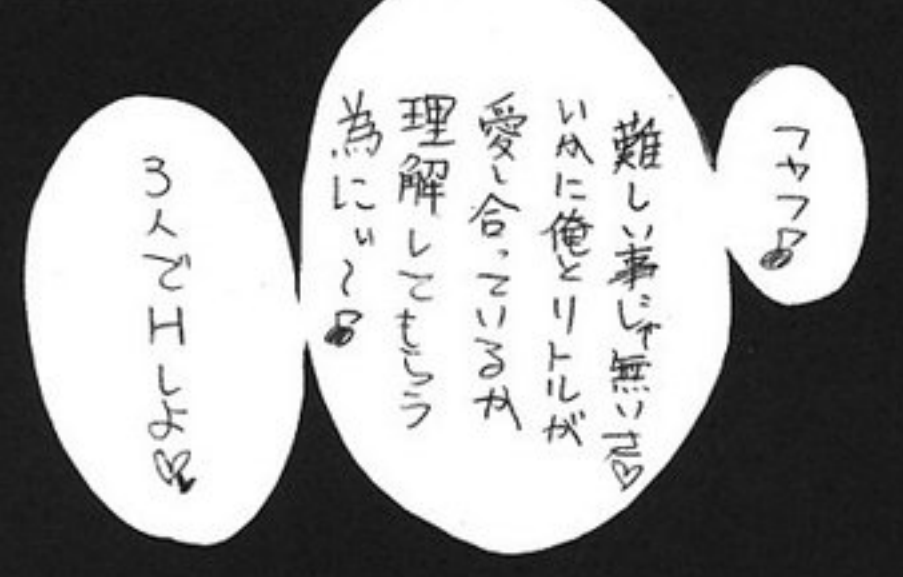 フヤフ♪
難しい事じゃ無いさ♡
いかに俺とリトルが
愛し合っているか
理解してもらう
為にぃ～♪
3人でHしよ♡